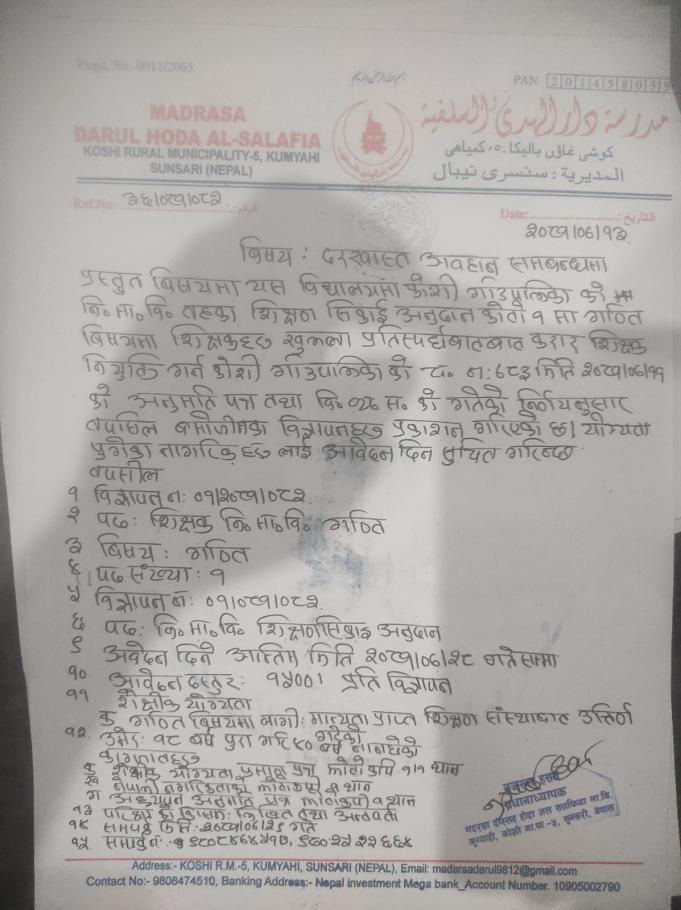 Regd. No -0011/2065
PAN. 201458039
MADRASA
DARUL HODA AL-SALAFIA
KOSHI RURAL MUNICIPALITY-5, KUMYAHI
SUNSARI (NEPAL)
مدرسة دار الهدى السلفية
كوشى غاؤں باليكا ٥، كمياهى
المديرية : سنسرى نيبال
Ref.No:- ३६/०८१/०८२ الرقم:
Date: التاريخ:
२०८१/०६/१३
बिषय : दरखास्त अवहान समबन्धमा
प्रस्तुत बिषयमा यस विद्यालयमा कोशी गाँउपालिका को
नि॰ मा॰ वि॰ तहका शिक्षण सिकाई अनुदान कोटा १ मा गणित
बिषयमा शिक्षकहरु खुल्ला प्रतिस्पर्धाबातबात करार शिक्षक
नियुक्ति गर्न कोशी गाँउपालिका को च. न: ६८३ मिति २०८१/०६/११
को अनुमति पत्र तथा बि॰ व्य॰ स॰ को गतेको निर्णयनुसार
तपसिल बमोजिमका विज्ञापनहरु प्रकाशन गरिएको छ। योग्यता
पुगेका नागरिकहरु लाई आवेदन दिन सुचित गरिन्छ
तपसील
१ विज्ञापन न: ०१/२०८१/०८२
२ पद: शिक्षक नि॰ मा॰ वि॰ गणित
३ बिषय : गणित
४ पद संख्या : १
५ विज्ञापन न: ०१/०८१/०८२
६ पद: नि॰ मा॰ वि॰ शिक्षण सिकाइ अनुदान
९ आवेदन दिने अन्तिम मिति २०८१/०६/२८ गतेसम्मा
१० आवेदन दस्तुर: १५००। प्रति विज्ञापन
११ शैक्षीक योग्यता
क गणित बिषयमा लागी: मान्यता प्राप्त शिक्षण संस्थाबाट उत्तिर्ण
गरेको
१२. उमेर: १८ बर्ष पुरा गरि ४० बर्ष नाघेको
कागजातहरु
क शैक्षीक योग्यता प्रमाण पत्र फोटो कपि १/१ थान
ख नेपाली नागरिकताको फोटोकपी १ थान
ग अध्यापन अनुमति पत्र फोटोकपी १ थान
१३ परिक्षा को किसिम: लिखित तथा अन्तर्वार्ता
१४ सम्पर्क मिति: २०८१/०६/२९ गते
१५ सम्पर्क न:
प्रधानाध्यापक
Address:- KOSHI R.M.-5, KUMYAHI, SUNSARI (NEPAL), Email: madarsadarul9812@gmail.com
Contact No:- 9808474510, Banking Address:- Nepal investment Mega bank_Account Number. 10905002790